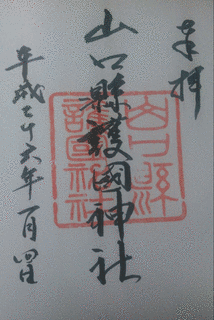 奉拝
山口縣護國神社
平成二十六年一月四日
山口縣護國神社